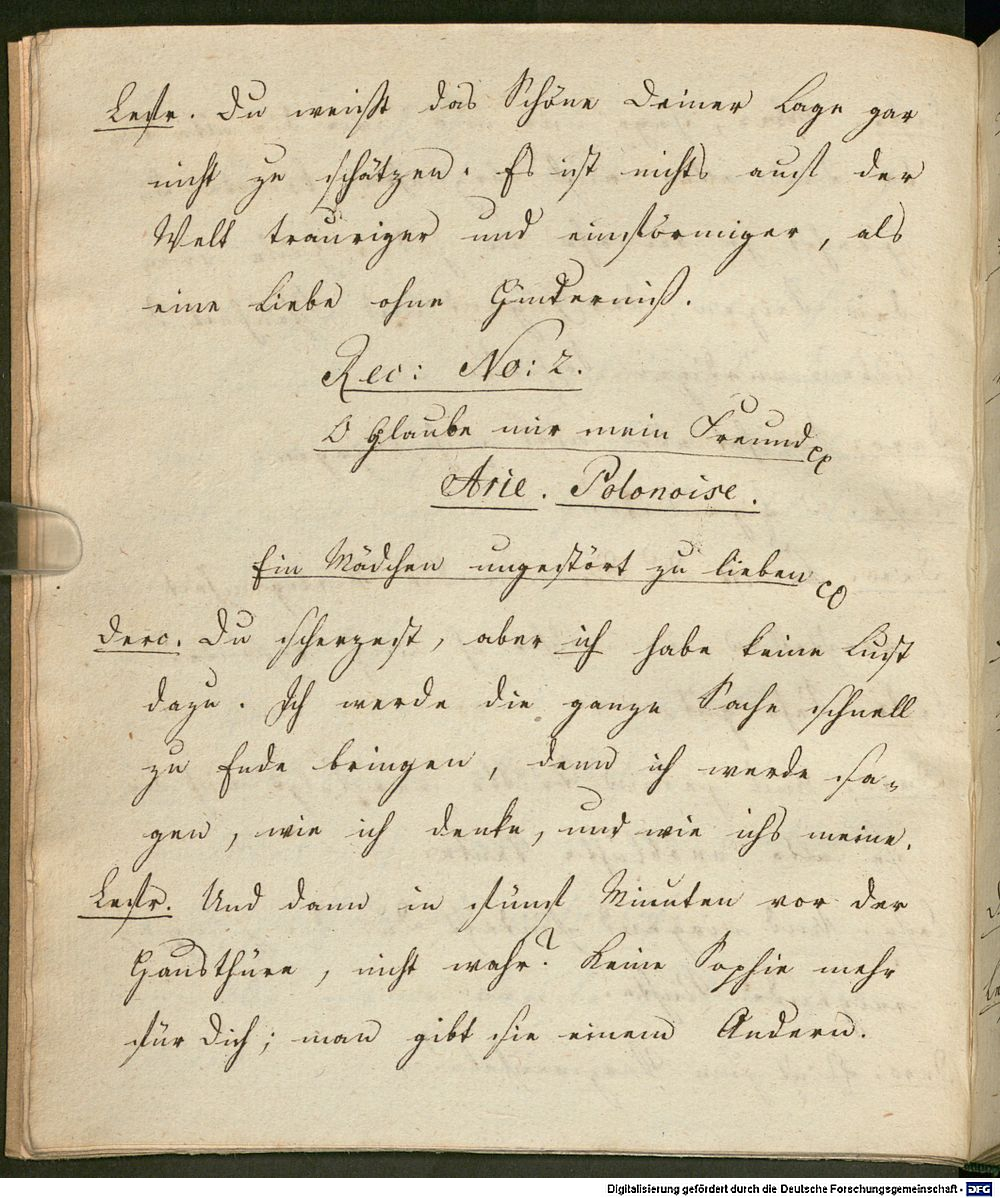 Lestr. Du weißt das Schöne Deiner Lage gar
nicht zu schätzen. Es ist nichts auf der
Welt trauriger und einförmiger, als
eine Liebe ohne Hinderniß.
Rec: No: 2.
O Glaube mir mein Freund
Arie. Polonoise.
Ein Mädchen ungestört zu lieben
Derc. Du scherzest, aber ich habe keine Lust
dazu. Ich werde die ganze Sache schnell
zu Ende bringen, denn ich werde sa-
gen, wie ich denke, und wie ichs meine.
Lestr. Und dann in fünf Minuten vor der
Hausthüre, nicht wahr? Keine Sophie mehr
für Dich; man gibt sie einem Andern.
Digitalisierung gefördert durch die Deutsche Forschungsgemeinschaft - DFG